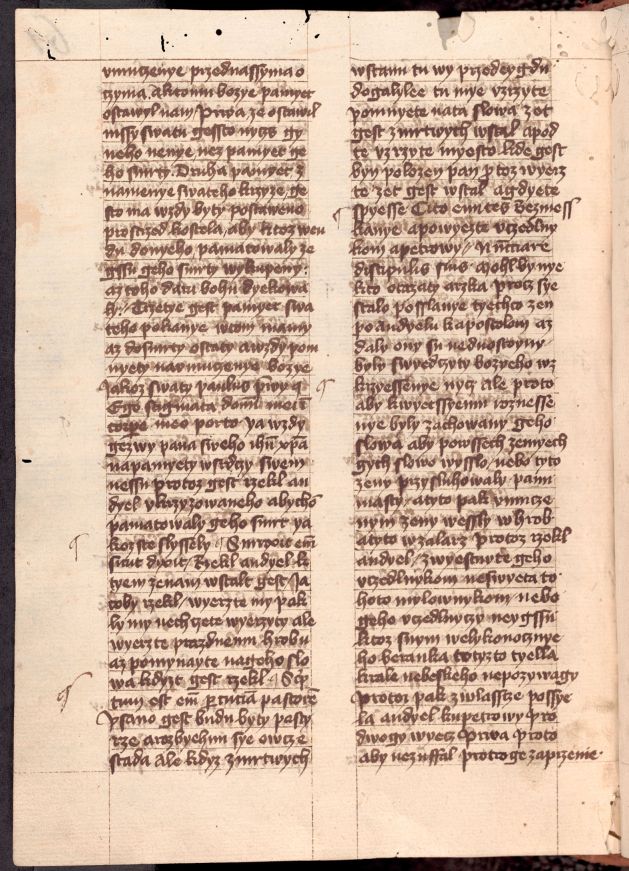 vmuczenye przednassyma o
czyma. Aktomu bozye pamyet
ostawyl nam Prwa ze ostawil
missy swatu gessto nyczs gy
neho nenye nez pamyet ge
ho smrty. Druha pamyet z
namenye swateho krzyze ge
sto ma wzdy byty postaweno
prostrzed kostela, aby ktoz weu
du donyeho, pamatowaly ze
gssu geho smrty wykupeny:
az toho data bohu dyekowa
ly. Trzetye gest pamyet swa
teho pokanye wtom mamy
az dosmrty ostaty awzdy pom
nyety naumuczenye bozye
Jakoz swaty paulus prwy q
Ego stigmata domini mei i
corpe meo porto. ya wzdy
gezwy pana sweho ihu xpa
napamyety wsrdczy swem
nessu protoz gest rzekl an
dyel vkrzyzowaneho abycho
pamatowaly geho smrt ya
kozste slyssely Surrexit em
sicut dyxit. Rzekl andyel k
tyem zenam wstalt gest Ja
koby rzekl, wyerzte my pak
ly my nechczete wyerzyty ale
wyerzte prazdnemu hrobu
az pomynayte nageho slo
wa kdyzt gest rzekl Scp
tum est em percuciam pastore
Psano gest budu byty pasty
rze arozbyehnu sye owcze
stada ale kdyz zmrtwych
wstanu tu wy przedeygdu
dogalylee tu mye vzrzyte
pomnyete nata slowa zet
gest zmrtwych wstal apod
te vzrzyte myesto kde gest
byn polozen pan protoz wyerz
te zet gest wstal agdyete
spyesse Cito euntes bezmess
kanye apowyezte vczedlny
kom apetrowy, Nunciare
discipulis suis Mohl by nye
kto otazaty arzka procz sye
stalo possanye tyechto zen
po andyelu kapostolom az
daly ony su neduostoyny
byly swyedczyty bozyeho wz
krzyessenye nycz ale proto
aby kwyetssyemu roznesse
nye byly zachowany geho
slowa aby powssech zemyech
gych slowo wysslo, nebo tyto
zeny przysluhowaly pannu
masty atyto pak vmucze
nym zeny wessly w hrob
atyto wzalarz protoz rzekl
andyel, zwyestuyte geho
vczedlnykom neswyeta to
hoto mylownykom, nebo
geho vczedlnyczy neygssu
ktoz snym welykonocznye
ho beranka totyzto tyella
krale nebeskeho nepozywagy
Protoz pak zwlasscze possye
la andyel kupetrowy pro
dwogy wyecz Prwa proto
aby nezuffal protoge zaprzenie.